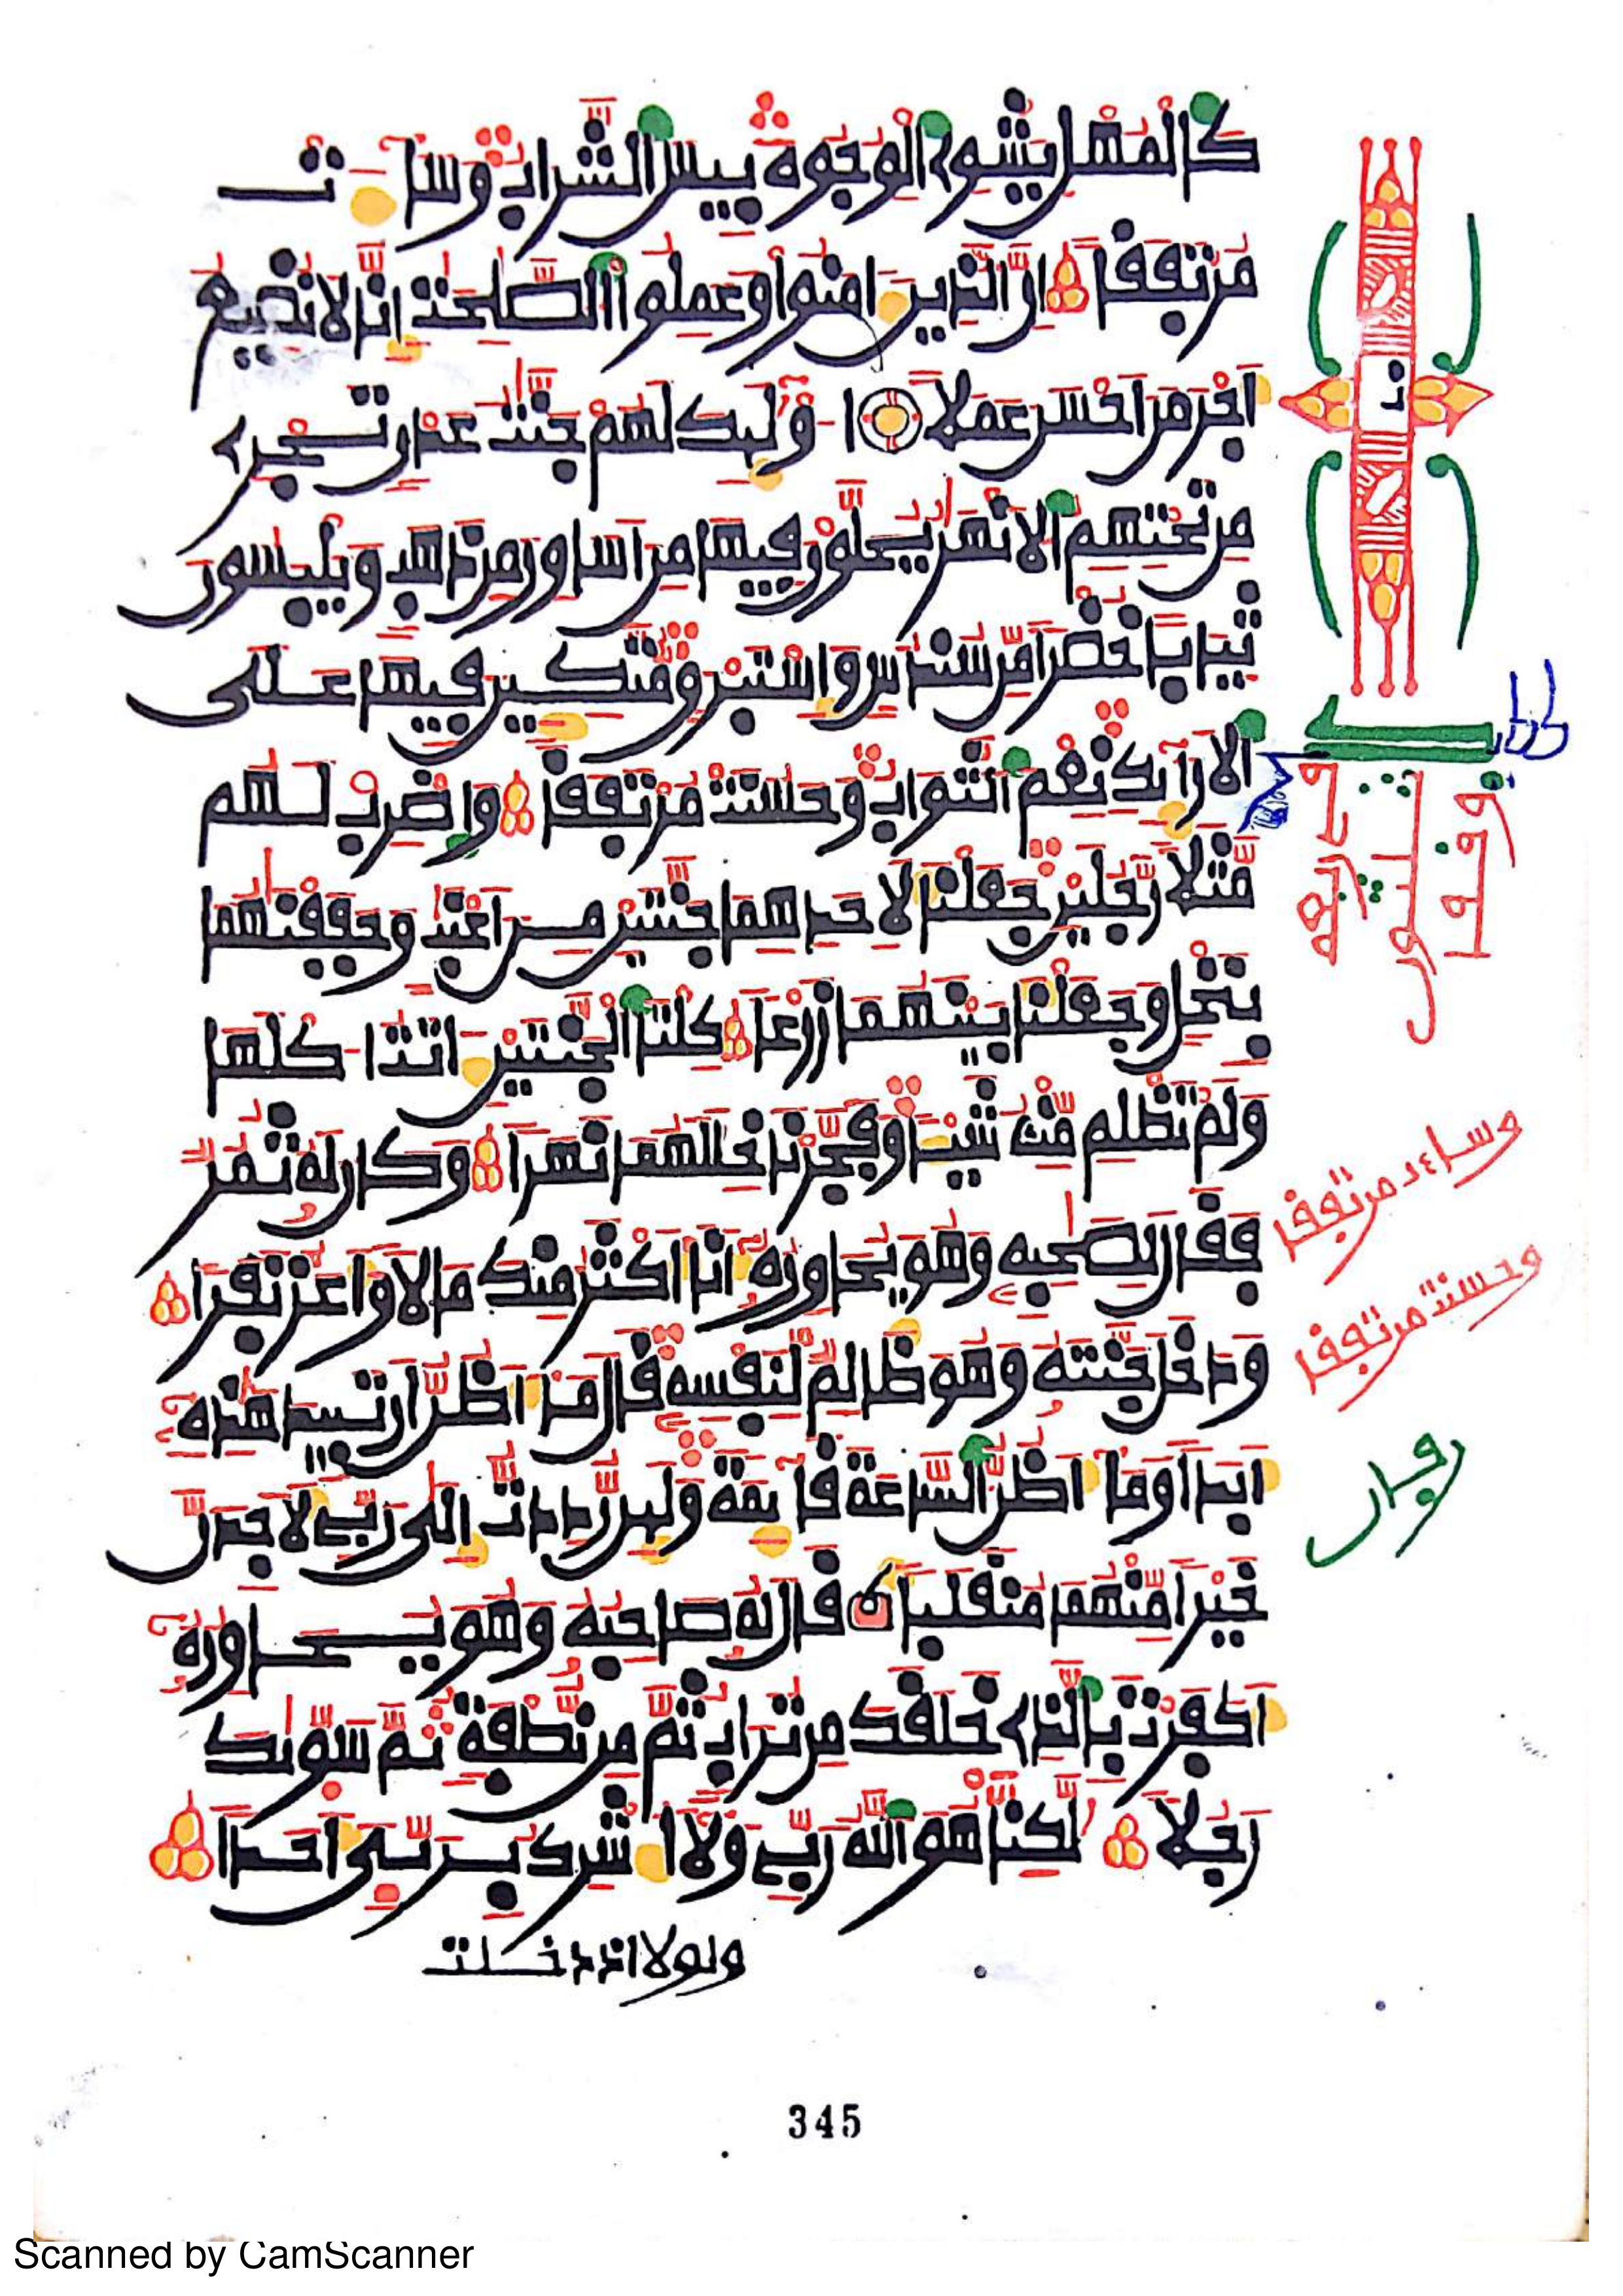 كالمهل يشوے الوجوه بيس الشراب وسات
مرتفقا ان الذين امنوا وعملوا الصلحت انا لا نضيع
اجر من احسن عملا اولىك لهم جنت عدن تجرے
من تحتهم الانهر يحلون فيها من اساور من ذهب ويلبسون
ثيابا خضرا من سندس واستبرق متكين فيها على
الارآىك نعم الثواب وحسنت مرتفقا واضرب لهم
مثلا رجلين جعلنا لاحدهما جنتين من اعنب وحففنهما
بنخل وجعلنا بينهما زرعا كلتا الجنتين اتت اكلها
ولم تظلم منه شيا وفجرنا خللهما نهرا وكان له ثمر
فقال لصحبه وهو يحاوره انا اكثر منك مالا واعز نفرا
ودخل جنته وهو ظالم لنفسه قال ما اظن ان تبيد هذه
ابدا وما اظن الساعة قآىمة ولىن رددت الى ربے لاجدن
خيرا منهما منقلبا قال له صاحبه وهو يحاوره
اكفرت بالذے خلقك من تراب ثم من نطفة ثم سوىك
رجلا لكنا هو الله ربے ولا اشرك بربى احدا
ولولا اذ دخلت
وساءت مرتفقا
وحسنت مرتفقا
345
Scanned by CamScanner